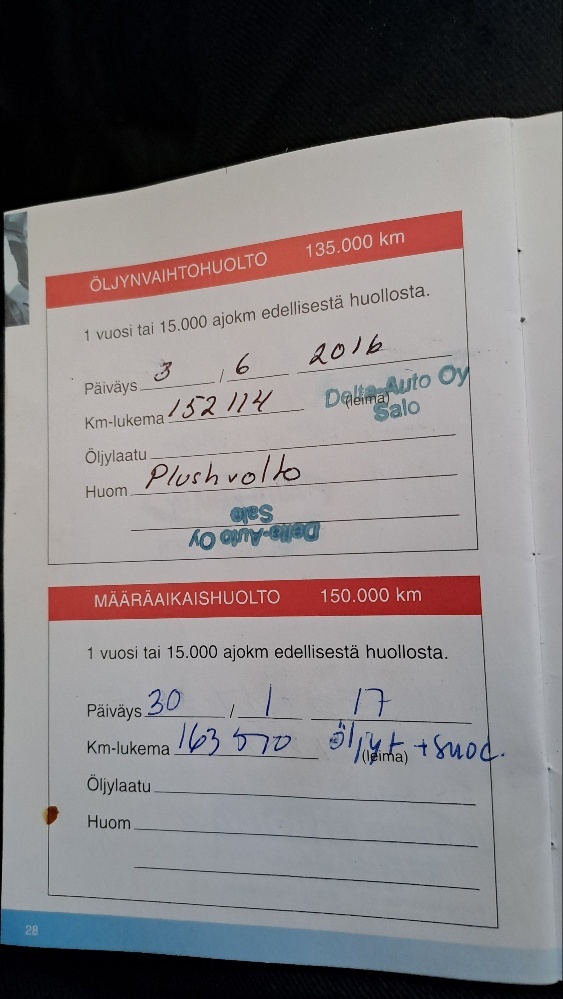 ÖLJYNVAIHTOHUOLTO 135.000 km
1 vuosi tai 15.000 ajokm edellisestä huollosta.
Päiväys 3 / 6 2016
Km-lukema 152 114 (leima)
Delta-Auto Oy
Salo
Öljylaatu
Huom Plushvolto
Delta-Auto Oy
Salo
MÄÄRÄAIKAISHUOLTO 150.000 km
1 vuosi tai 15.000 ajokm edellisestä huollosta.
Päiväys 30 / 1 17
Km-lukema 163 570 öljyt + suod.
(leima)
Öljylaatu
Huom
28